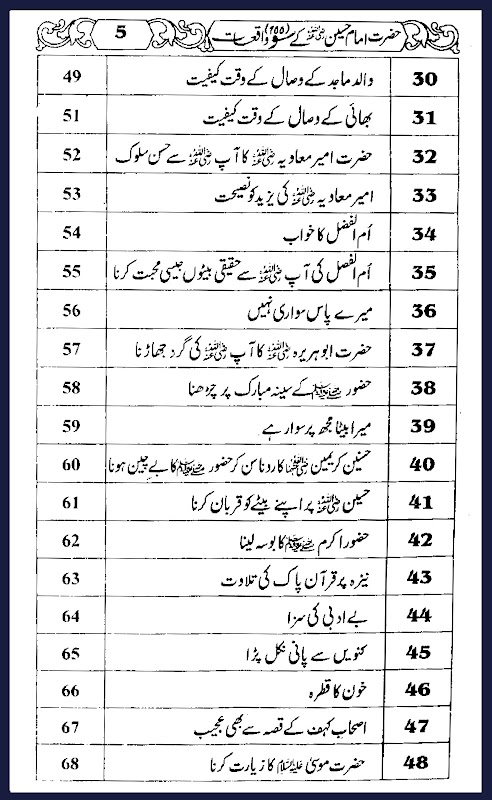 حضرت امام حسین رضی اللہ عنہ کے سو (۱۰۰) واقعات 5
30 والد ماجد کے وصال کے وقت کیفیت 49
31 بھائی کے وصال کے وقت کیفیت 51
32 حضرت امیر معاویہ رضی اللہ عنہ کا آپ رضی اللہ عنہ سے حسن سلوک 52
33 امیر معاویہ رضی اللہ عنہ کی یزید کو نصیحت 53
34 اُم الفضل کا خواب 54
35 اُم الفضل کی آپ رضی اللہ عنہ سے حقیقی بیٹوں جیسی محبت کرنا 55
36 میرے پاس سواری نہیں 56
37 حضرت ابوہریرہ رضی اللہ عنہ کا آپ رضی اللہ عنہ کی گرد جھاڑنا 57
38 حضور صلی اللہ علیہ وسلم کے سینہ مبارک پر چڑھنا 58
39 میرا بیٹا مجھ پر سوار ہے 59
40 حسنین کریمین رضی اللہ عنہما کا رونا سن کر حضور صلی اللہ علیہ وسلم کا بے چین ہونا 60
41 حسین رضی اللہ عنہ پر اپنے بیٹے کو قربان کرنا 61
42 حضور اکرم صلی اللہ علیہ وسلم کا بوسہ لینا 62
43 نیزہ پر قرآن پاک کی تلاوت 63
44 بے ادبی کی سزا 64
45 کنویں سے پانی نکل پڑا 65
46 خون کا قطرہ 66
47 اصحاب کہف کے قصہ سے بھی عجیب 67
48 حضرت موسیٰ علیہ السلام کا زیارت کرنا 68